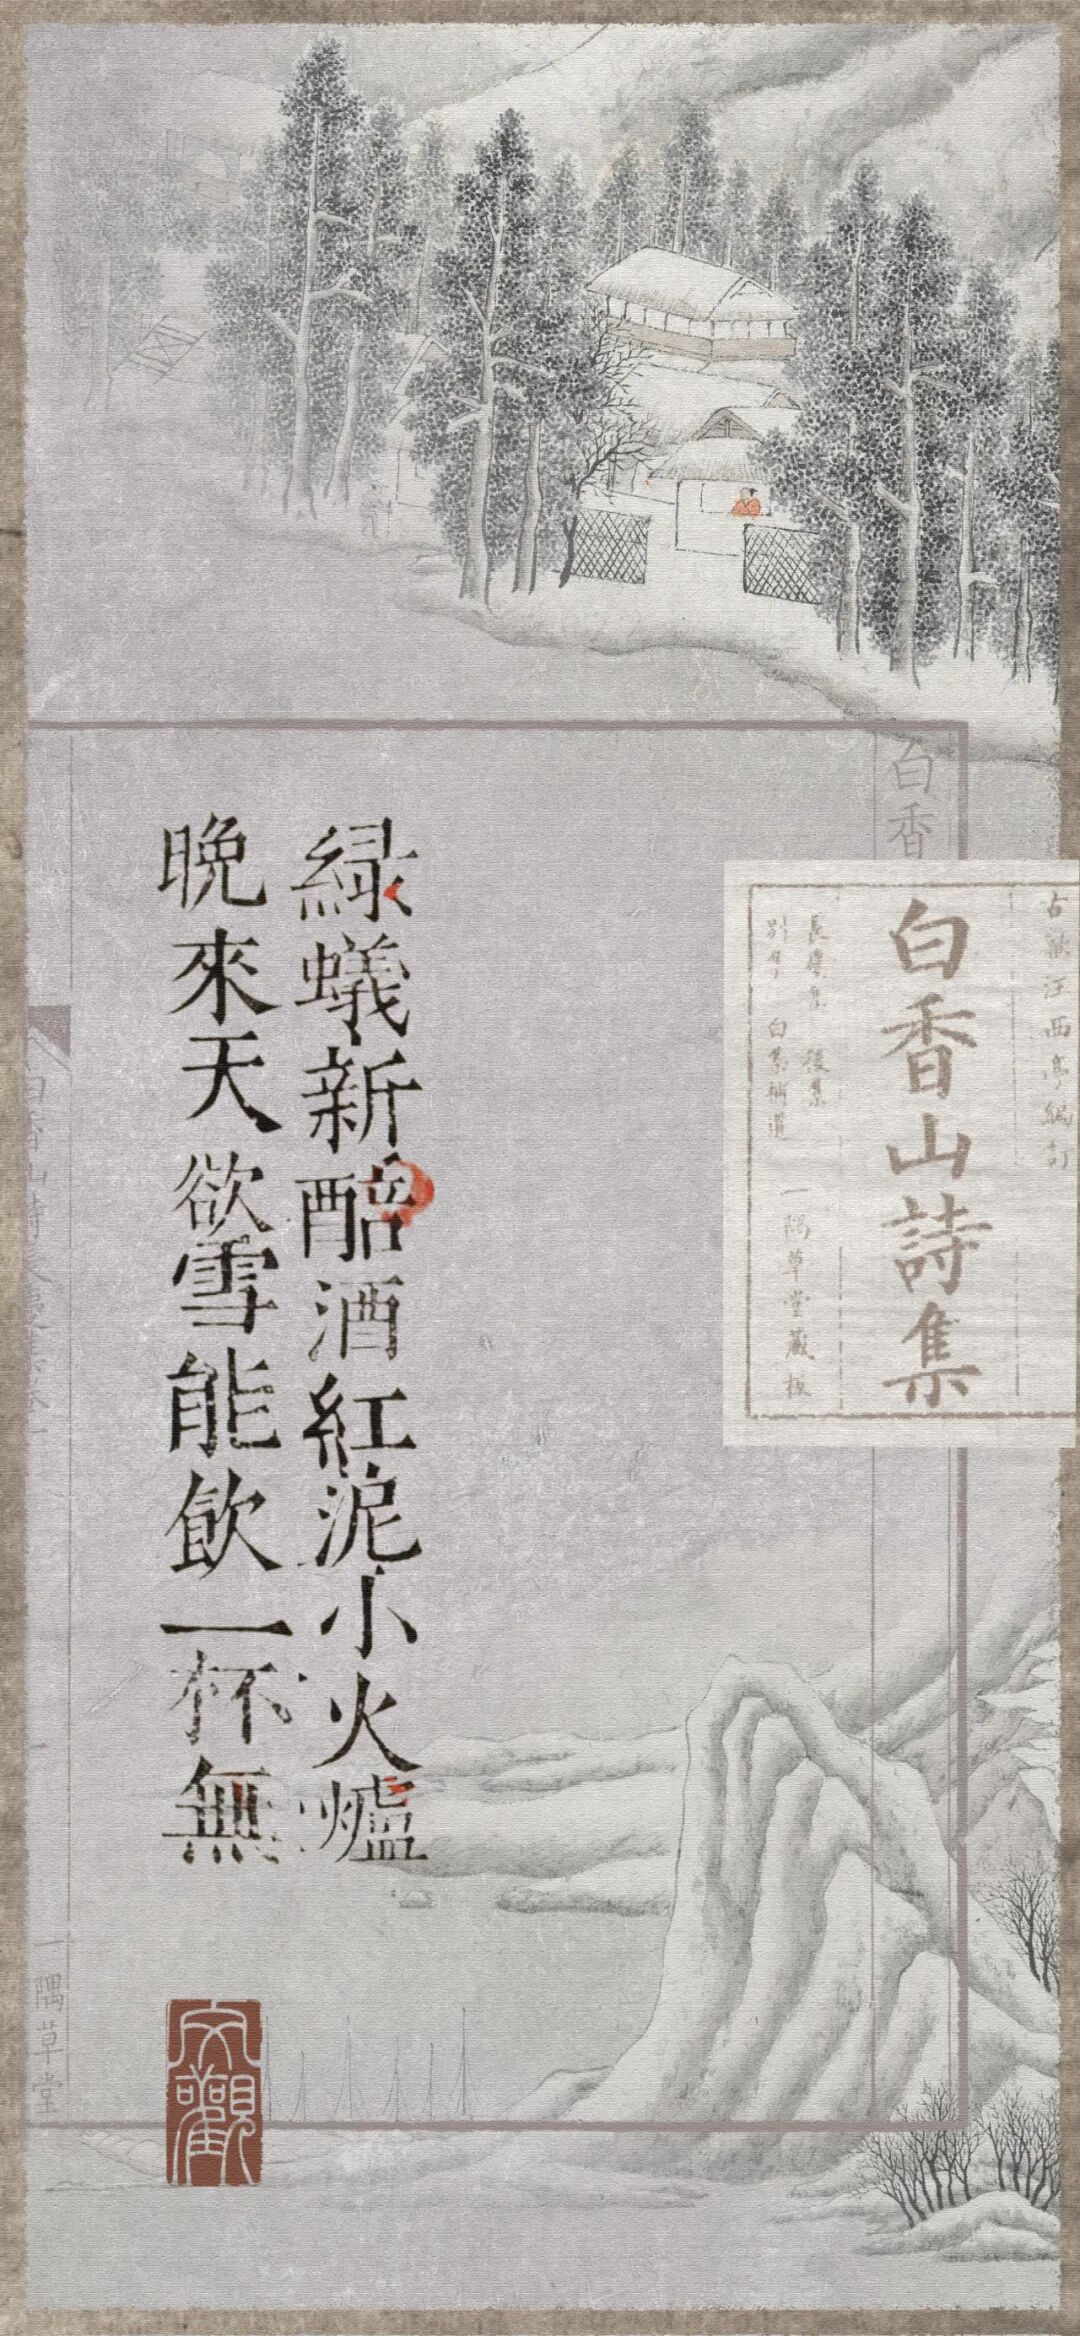 綠蟻新醅酒紅泥小火爐
晚來天欲雪能飲一杯無
古歙汪西亭編訂
白香山詩集
長慶集 後集
別集 白集補遺
一隅草堂藏板
白香
一隅草堂
文觀